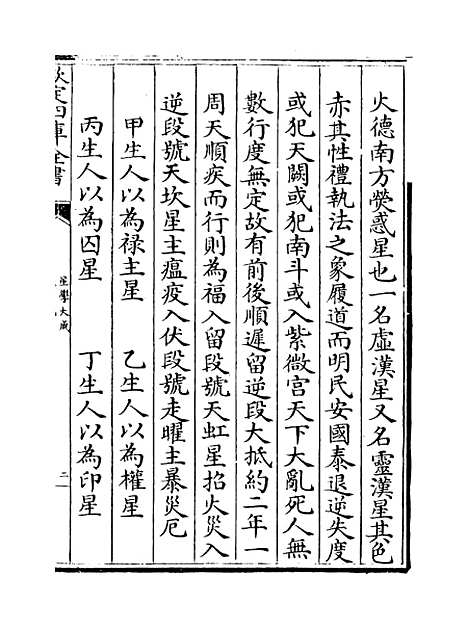 火德南方熒惑星也一名虛漢星又名靈漢星其色
赤其性禮執法之象履道而明民安國泰退逆失度
或犯天闕或犯南斗或入紫微宮天下大亂死人無
數行度無定故有前後順遲留逆段大抵約二年一
周天順疾而行則為福入留段號天虹星掐火災入
逆段號天坎星主瘟疫入伏段號走曜主暴災厄
甲生人以為祿主星　乙生人以為權星
丙生人以為囚星　丁生人以為印星
欽定四庫全書
星學大成
二